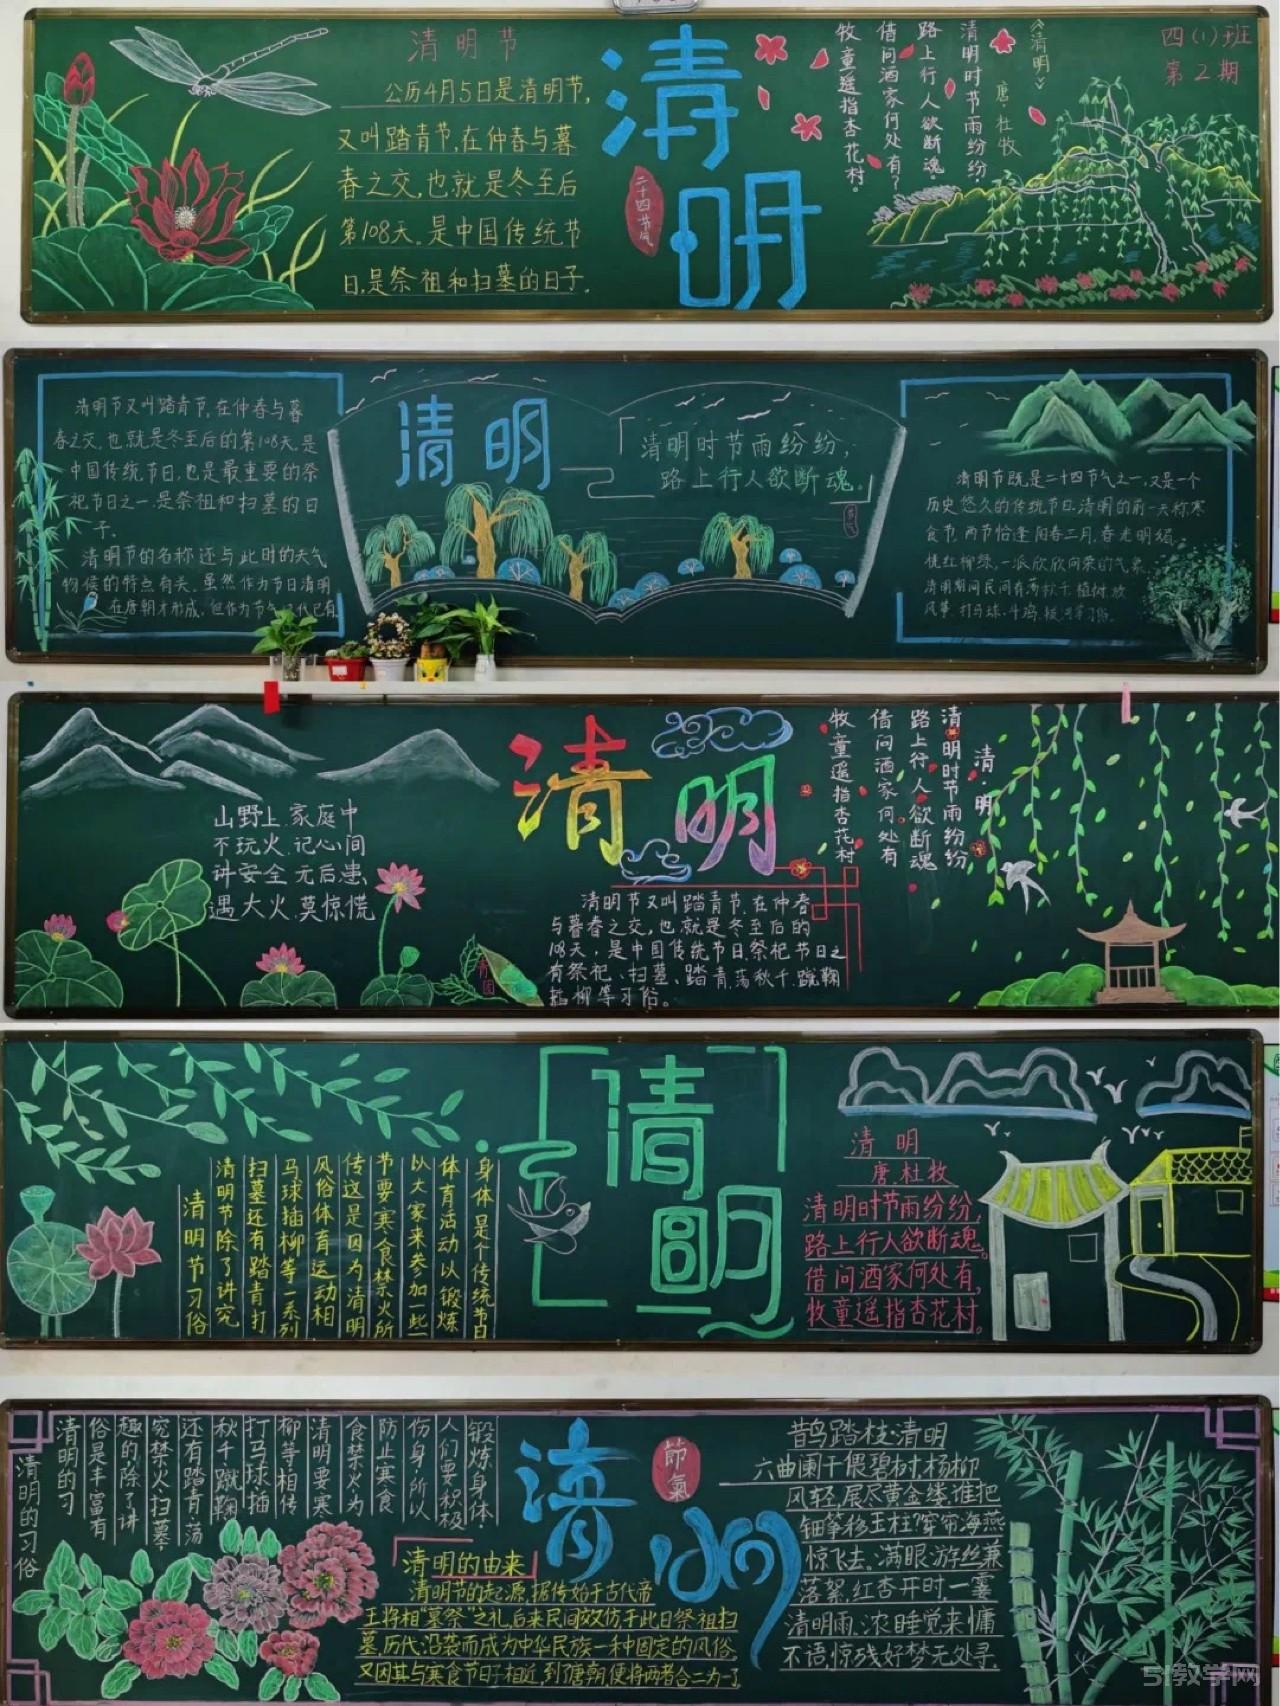 清明节
公历4月5日是清明节,
又叫踏青节,在仲春与暮
春之交,也就是冬至后
第108天。是中国传统节
日,是祭祖和扫墓的日子.
清明
二十四节气
《清明》
唐·杜牧
清明时节雨纷纷
路上行人欲断魂
借问酒家何处有?
牧童遥指杏花村。
四(1)班
第2期
清明节又叫踏青节,在仲春与暮
春之交,也就是冬至后的第108天,是
中国传统节日,也是最重要的祭
祀节日之一.是祭祖和扫墓的日
子。
清明节的名称还与此时的天气
物候的特点有关。虽然作为节日清明
在唐朝才形成,但作为节气
清明
「清明时节雨纷纷,
路上行人欲断魂。」
节气
清明节既是二十四节气之一,又是一个
历史悠久的传统节日.清明的前一天称寒
食节.两节恰逢阳春三月,春光明媚、
桃红柳绿,一派欣欣向荣的气象.
清明期间民间有荡秋千.植树.放
风筝.打马球.斗鸡.
山野上.家庭中
不玩火.记心间
讲安全.无后患
遇大火.莫惊慌
青团
清明
清明节又叫踏青节,在仲春
与暮春之交,也就是冬至后的
108天,是中国传统节日,祭祀节日之
有祭祀、扫墓、踏青,荡秋千,蹴鞠
插柳等习俗。
清·明
清明时节雨纷纷
路上行人欲断魂
借问酒家何处有
牧童遥指杏花村
清明节习俗
清明节除了讲究
扫墓还有踏青打
马球插柳等一系列
风俗体育运动相
传这是因为清明
节要寒食禁火所
以大家来参加一些
体育活动以锻炼
身体是个传统节日
清明
清明
唐.杜牧
清明时节雨纷纷,
路上行人欲断魂。
借问酒家何处有,
牧童遥指杏花村。
清明的习俗
清明的习
俗是丰富有
趣的,除了讲
究禁火,扫墓
还有踏青,荡
秋千蹴鞠
打马球,插
柳等相传
清明要寒
食禁火,为
防止寒食
伤身,所以
人们要积极
锻炼身体.
清明的由来
清明节的起源,据传始于古代帝
王将相"墓祭"之礼,后来民间效仿于此日祭祖扫
墓,历代沿袭而成为中华民族一种固定的风俗,
又因其与寒食节日子相近,到了唐朝,便将两者合二为一了
清明
節氣
鹊踏枝·清明
六曲阑干偎碧树,杨柳
风轻,展尽黄金缕.谁把
钿筝移玉柱?穿帘海燕
惊飞去.满眼游丝兼
落絮,红杏开时,一霎
清明雨.浓睡觉来慵
不语,惊残好梦无处寻.
51教学网